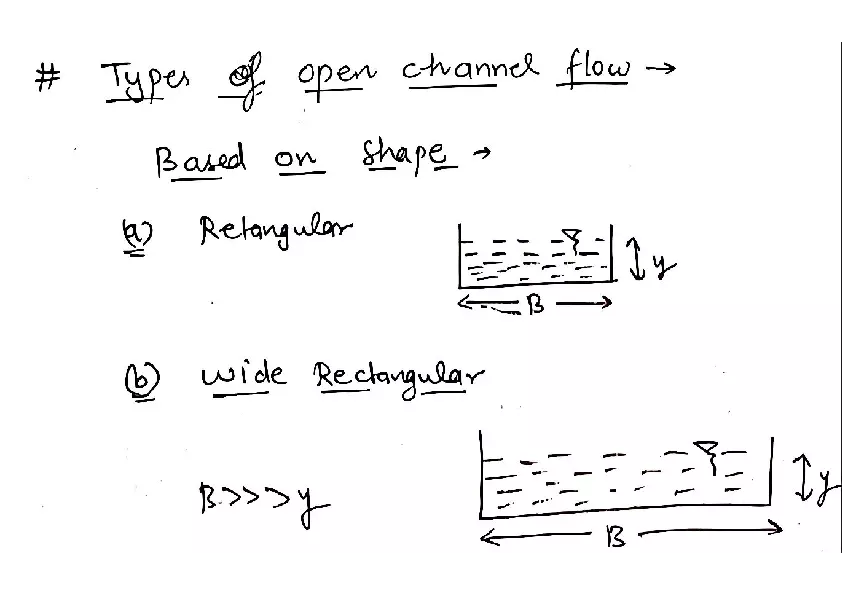 # Types of open channel flow →
Based on shape →
(a) Retangular
y
B
(b) wide Rectangular
B>>>y
y
B